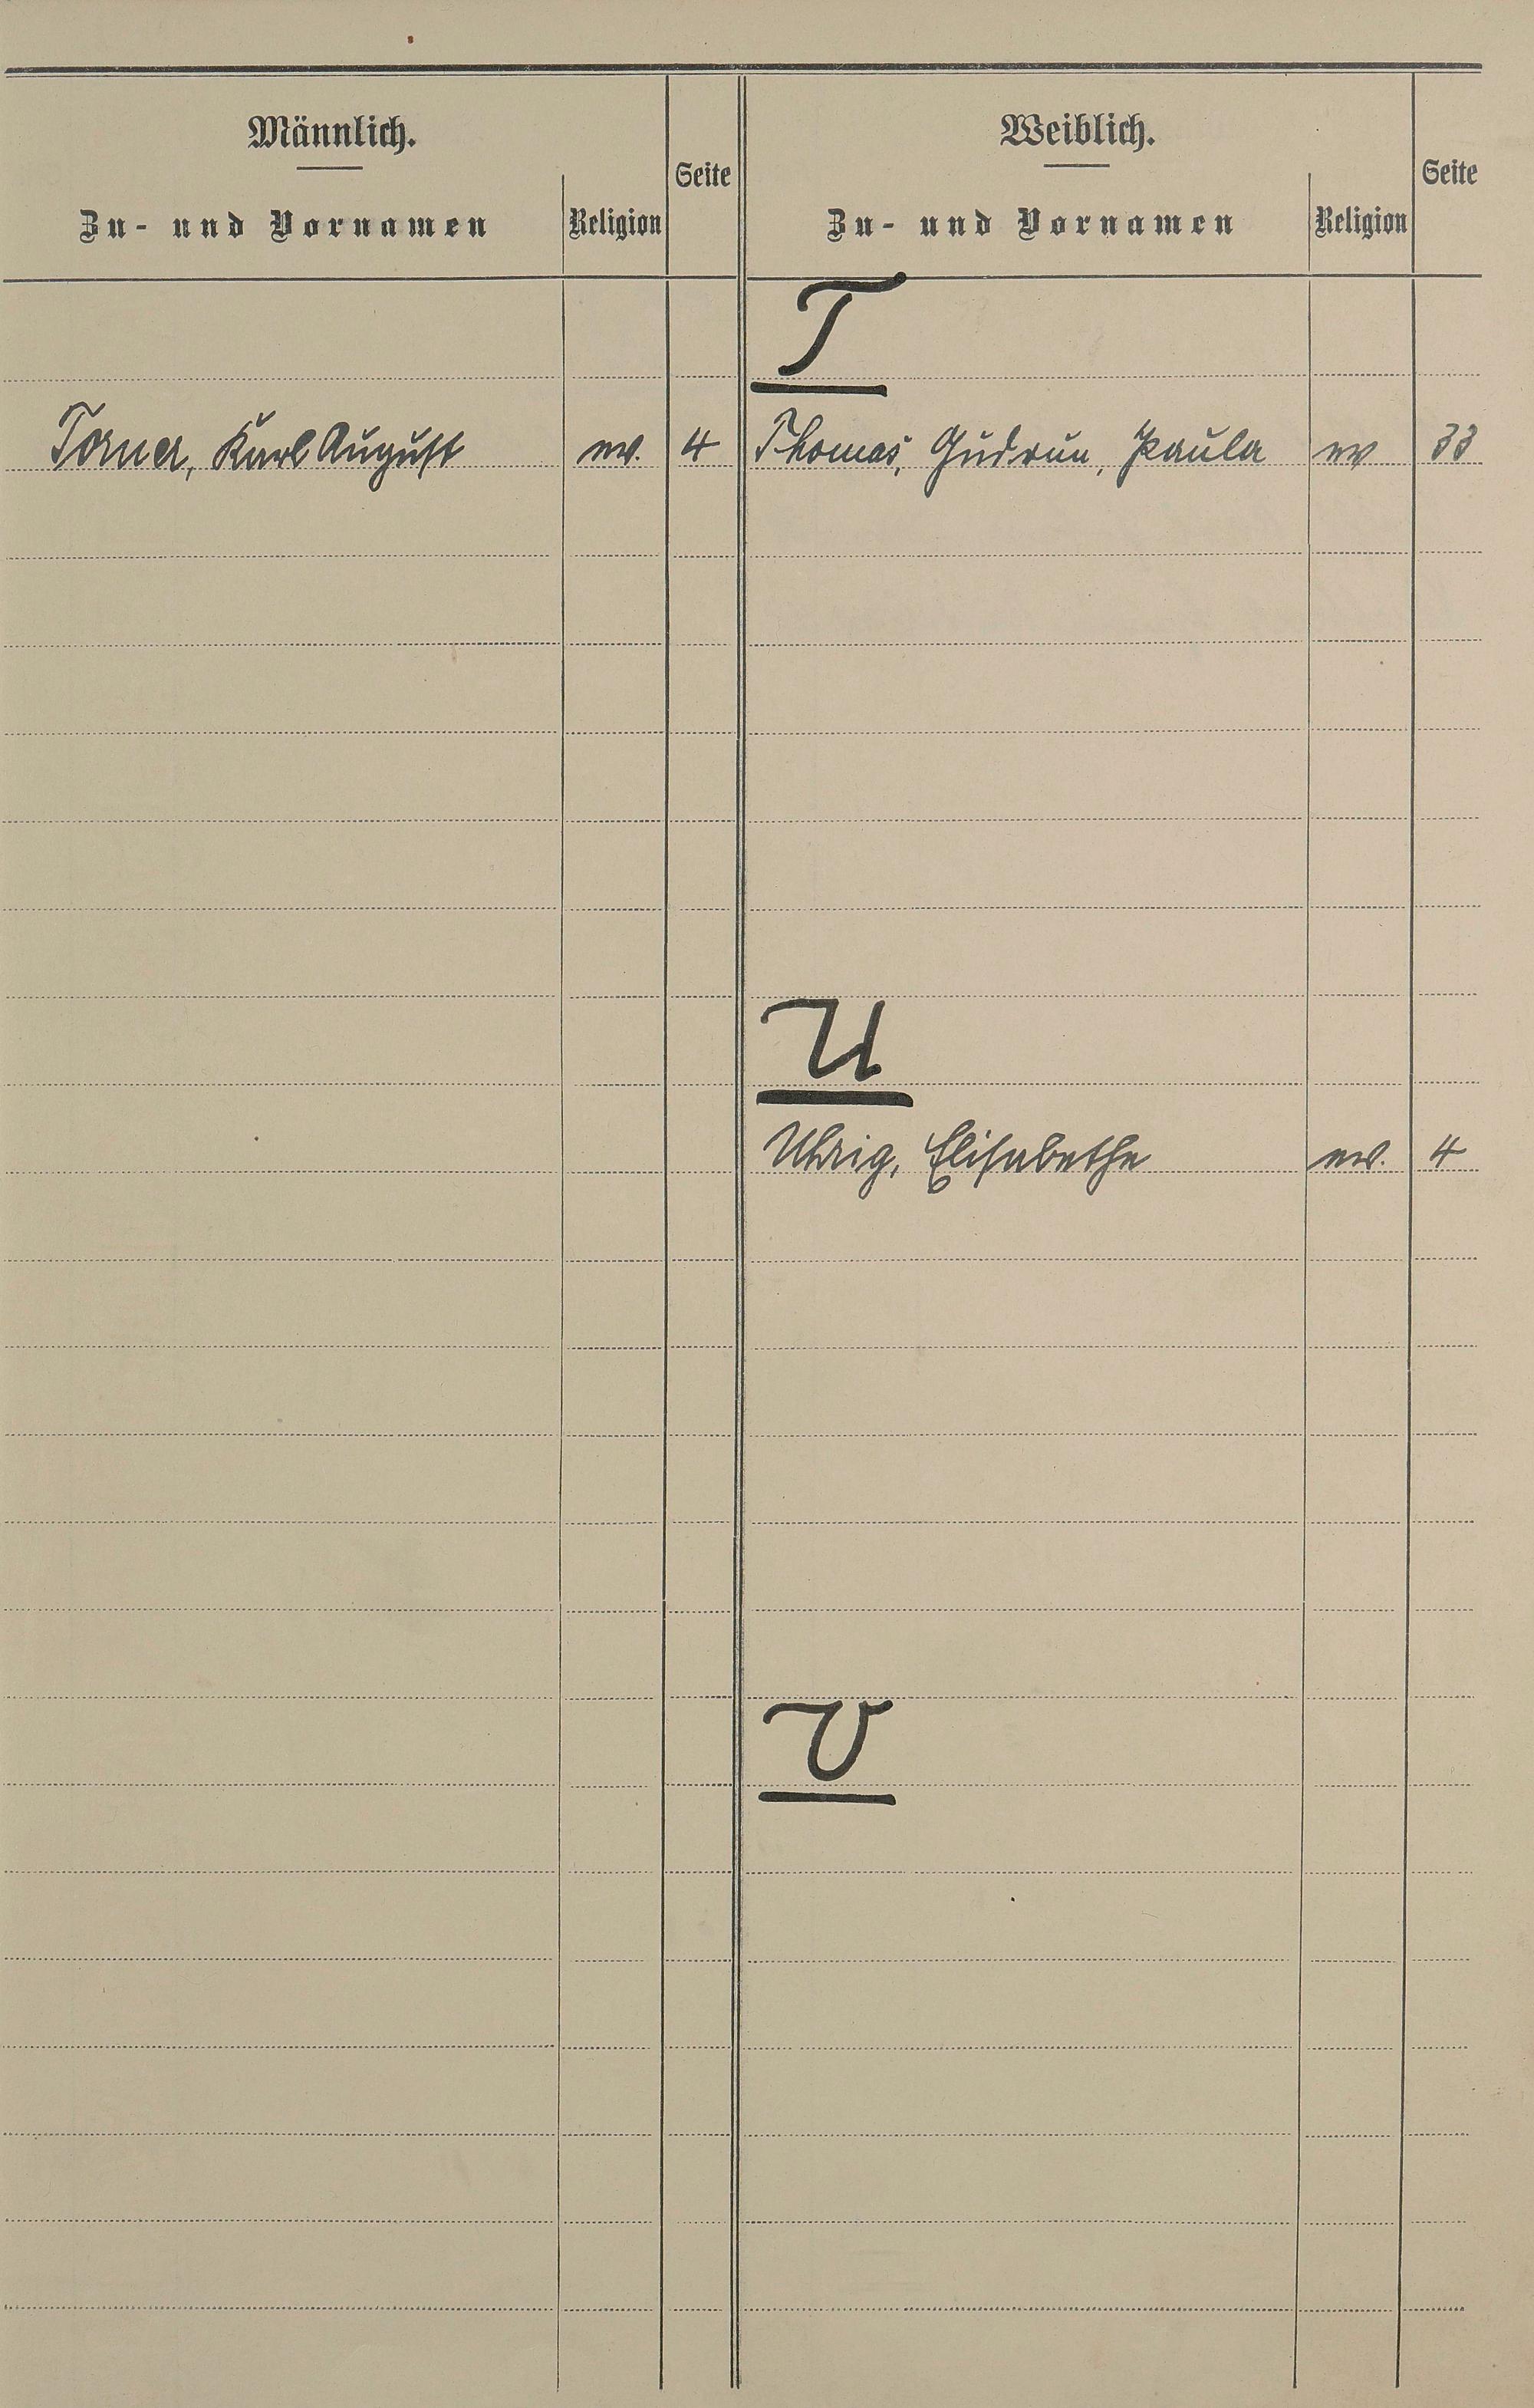 Männlich.
Zu- und Vornamen
Religion
Seite
Weiblich.
Zu- und Vornamen
Religion
Seite
T
Torner, Karl August ev. 4 Thomas, Gudrun, Paula ev 33
U
Uhrig, Elisabethe ev. 4
V